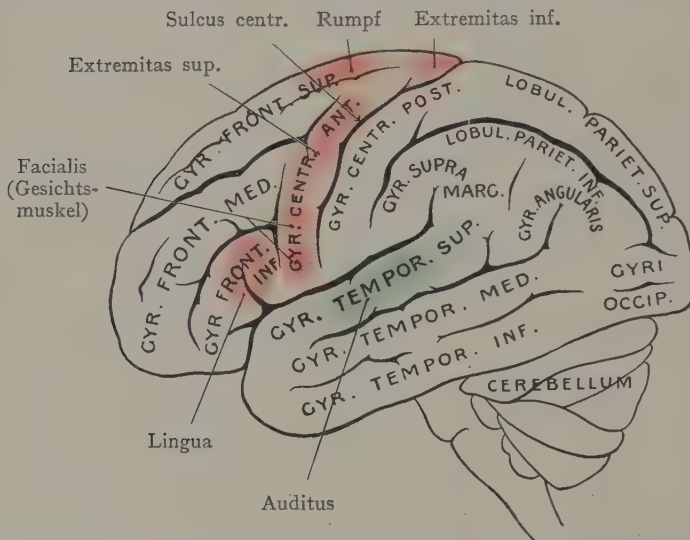 Sulcus centr.
Rumpf
Extremitas inf.
Extremitas sup.
Facialis
(Gesichts-
muskel)
GYR. FRONT. SUP.
GYR. FRONT. MED.
GYR FRONT.
INF.
GYR. CENTR. ANT.
GYR. CENTR. POST.
LOBUL. PARIET. SUP.
LOBUL. PARIET. INF.
GYR. SUPRA
MARG.
GYR. ANGULARIS
GYRI
OCCIP.
GYR. TEMPOR. SUP.
GYR. TEMPOR. MED.
GYR. TEMPOR. INF.
CEREBELLUM
Lingua
Auditus